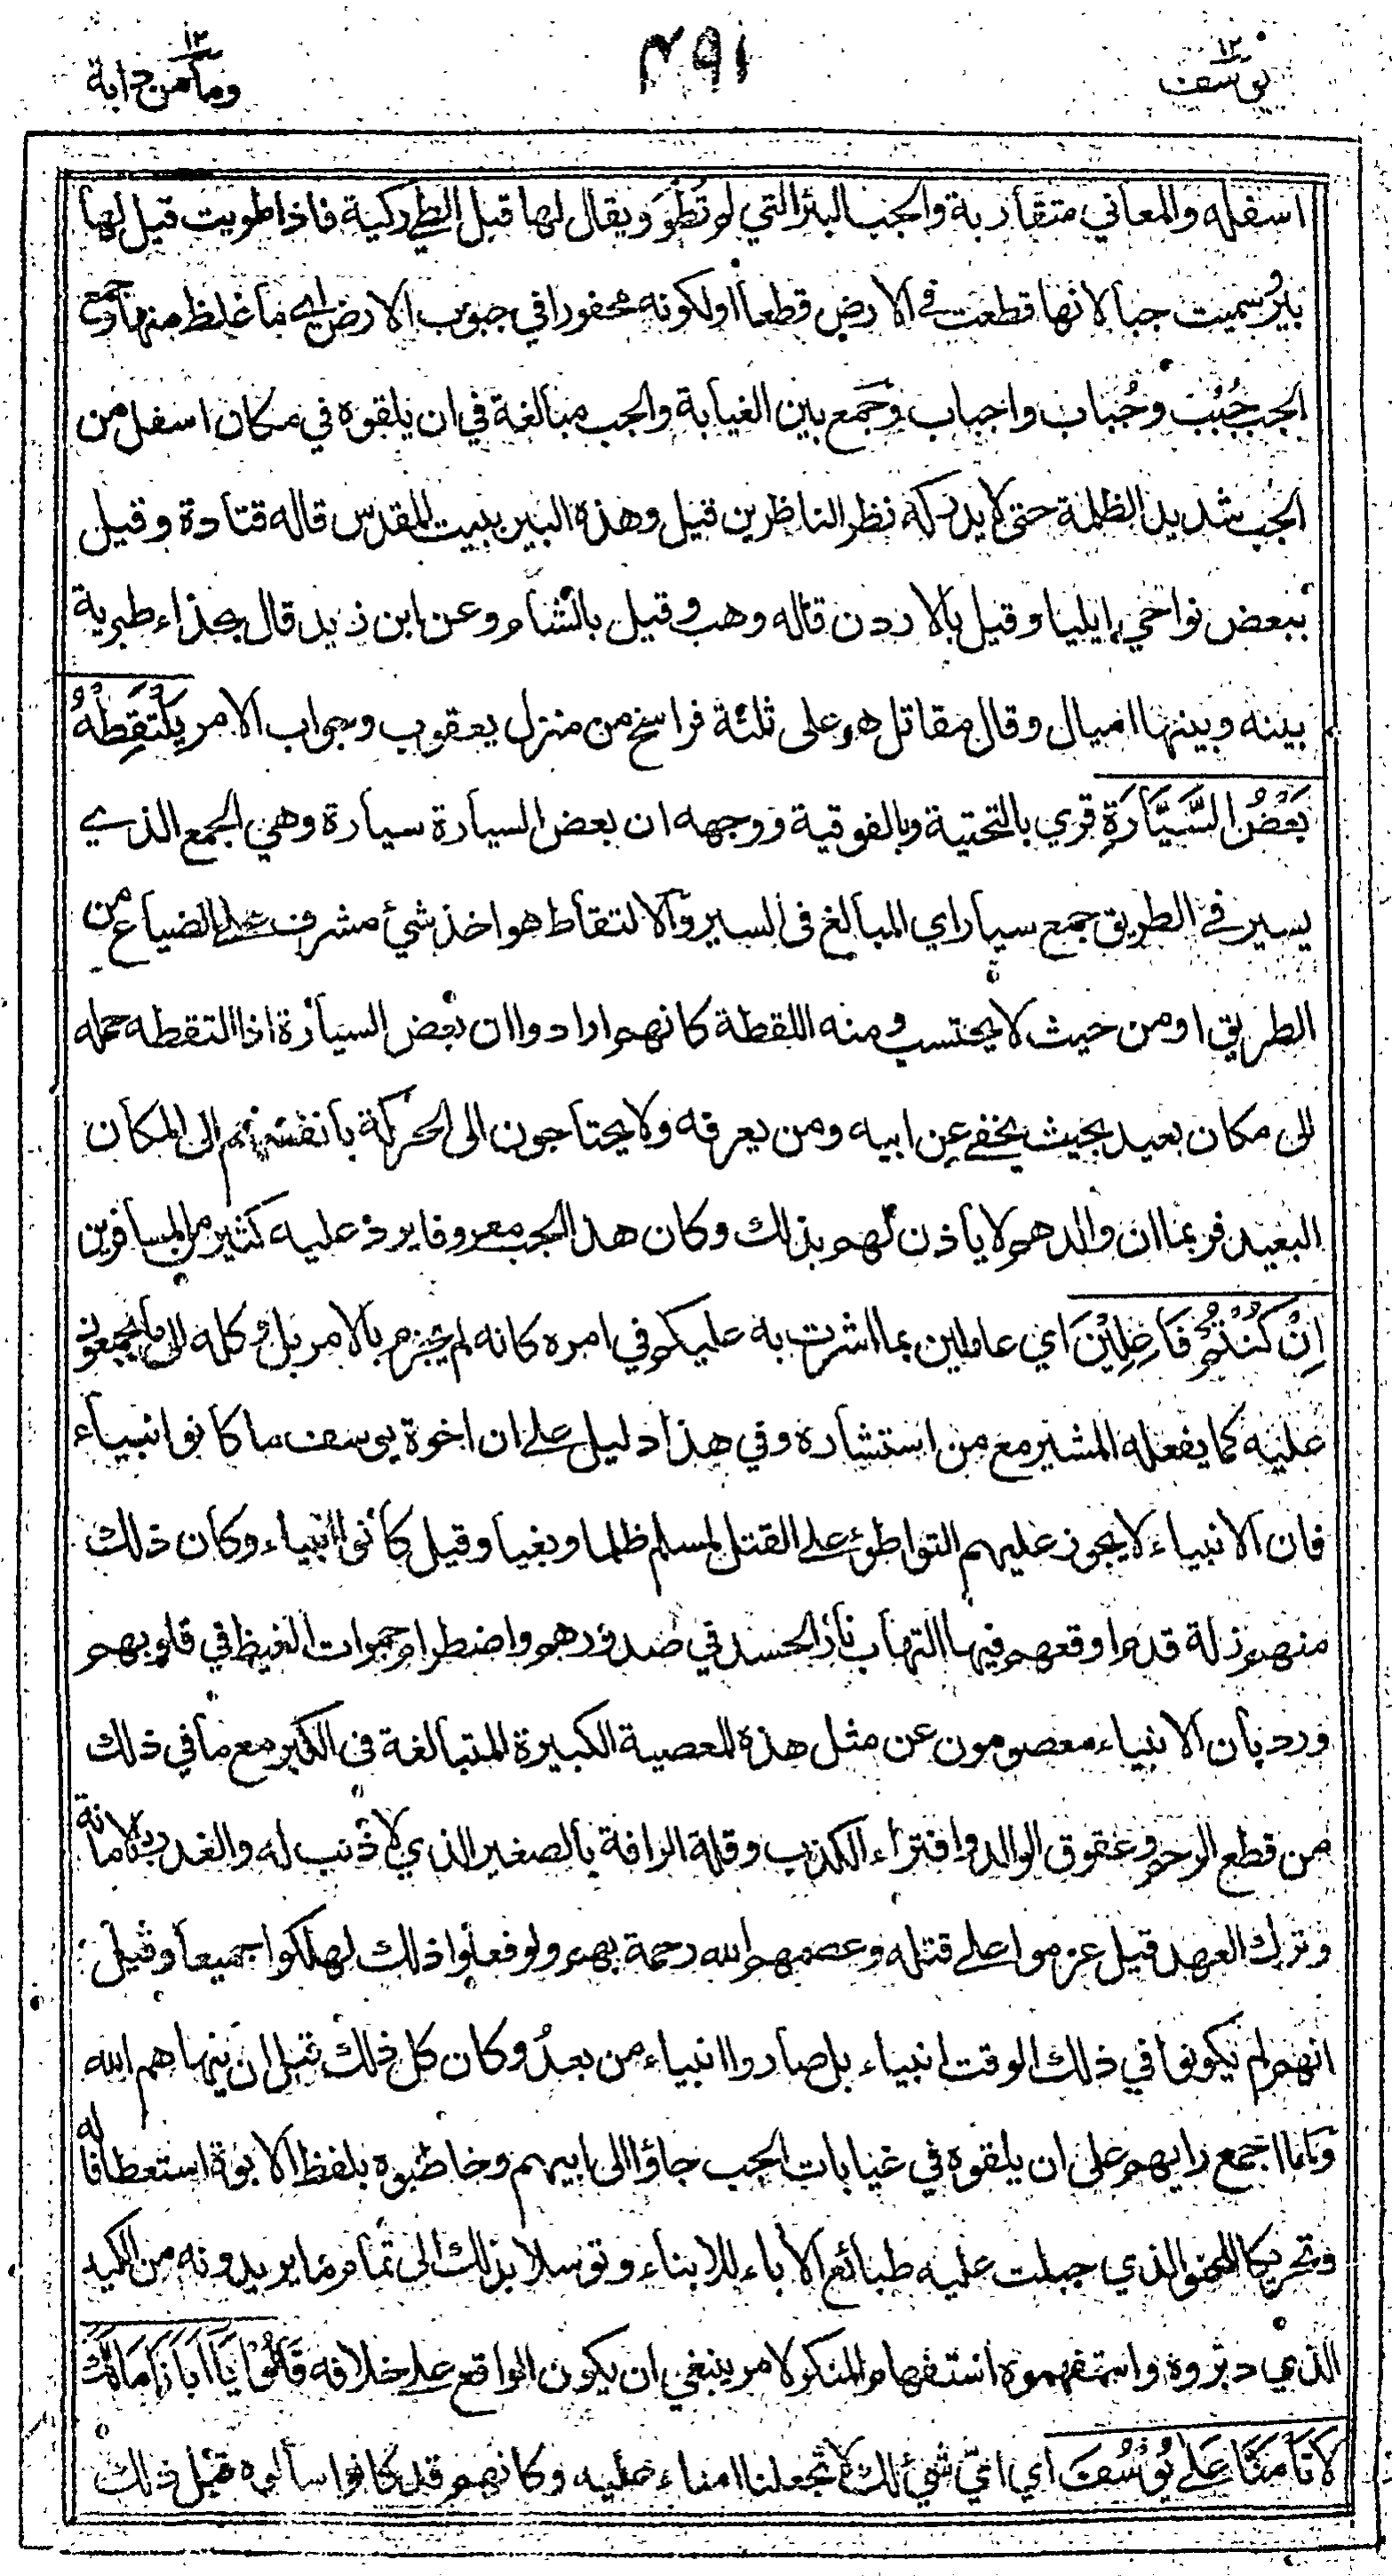 يوسف ١٢
٤٩١
وما من دابة ١٢
اسفله والمعاني متقاربة والجب البئر التي لم تطو ويقال لها قبل الطي ركية فاذا طويت قيل لها
بير وسميت جبا لانها قطعت في الارض قطعا اولكونه محفورا في جبوب الارض اي ما غلظ منها وجمع
الجب جُبُب وجُباب واجباب وجمع بين الغيابة والجب مبالغة في ان يلقوه في مكان اسفل من
الجب شديد الظلمة حتى لا يدركه نظر الناظرين قيل وهذه البير ببيت المقدس قاله قتادة وقيل
ببعض نواحي ايليا وقيل بالاردن قاله وهب وقيل بالشام وعن ابن زيد قال بحذاء طبرية
بينه وبينها اميال وقال مقاتل هو على ثلثة فراسخ من منزل يعقوب وجواب الامر يَلْتَقِطْهُ
بَعْضُ السَّيَّارَةِ قري بالتحتية وبالفوقية ووجهه ان بعض السيارة سيارة وهي الجمع الذي
يسير في الطريق جمع سيار اي المبالغ في السير والالتقاط هو اخذ شئ مشرف على الضياع من
الطريق او من حيث لا يحتسب ومنه اللقطة كانهم ارادوا ان بعض السيارة اذا التقطه حمله
الى مكان بعيد بحيث يخفى عن ابيه ومن يعرفه ولا يحتاجون الى الحركة بانفسهم الى المكان
البعيد فربما ان والدهم لا ياذن لهم بذلك وكان هذا الجب معروفا يرد عليه كثير من المسافرين
اِنْ كُنْتُمْ فَاعِلِيْنَ اي عاملين بما اشرت به عليكم في امره كانه لم يجزم بالامر بل وكله الى ما يجمعون
عليه كما يفعله المشير مع من استشاره وفي هذا دليل على ان اخوة يوسف ما كانوا انبياء
فان الانبياء لا يجوز عليهم التواطؤ على القتل لمسلم ظلما وبغيا وقيل كانوا انبياء وكان ذلك
منهم زلة قدم اوقعهم فيها التهاب نار الحسد في صدورهم واضطرام جمرات الغيظ في قلوبهم
ورد بان الانبياء معصومون عن مثل هذه المعصية الكبيرة المتبالغة في الكبر مع ما في ذلك
من قطع الرحم وعقوق الوالد وافتراء الكذب وقلة الرافة بالصغير الذي لا ذنب له والغدر بالامانة
وترك العهد قيل عزموا على قتله وعصمهم الله رحمة بهم ولو فعلوا ذلك لهلكوا جميعا وقيل
انهم لم يكونوا في ذلك الوقت انبياء بل صاروا انبياء من بعدُ وكان كل ذلك قبل ان ينباهم الله
ولما اجمع رايهم على ان يلقوه في غيابات الجب جاؤا الى ابيهم وخاطبوه بلفظ الابوة استعطافا له
وتحريكا للحنو الذي جبلت عليه طبائع الأباء للابناء وتوسلا بذلك الى تمام ما يريدونه من الكيد
الذي دبروه واستفهموه استفهام المنكر لامر ينبغي ان يكون الواقع على خلافه قَالُوْا يَا اَبَانَا مَالَكَ
لَا تَأْمَنَّا عَلٰى يُوْسُفَ اي اي شئ لك لا تجعلنا امناء عليه وكانهم قد كانوا سالوه قبل ذلك